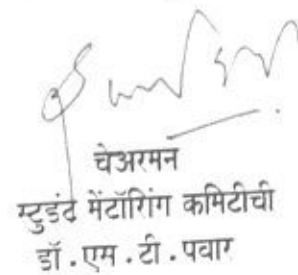 चेअरमन
स्टुडंट मेंटॉरिंग कमिटीची
डॉ . एम . टी . पवार